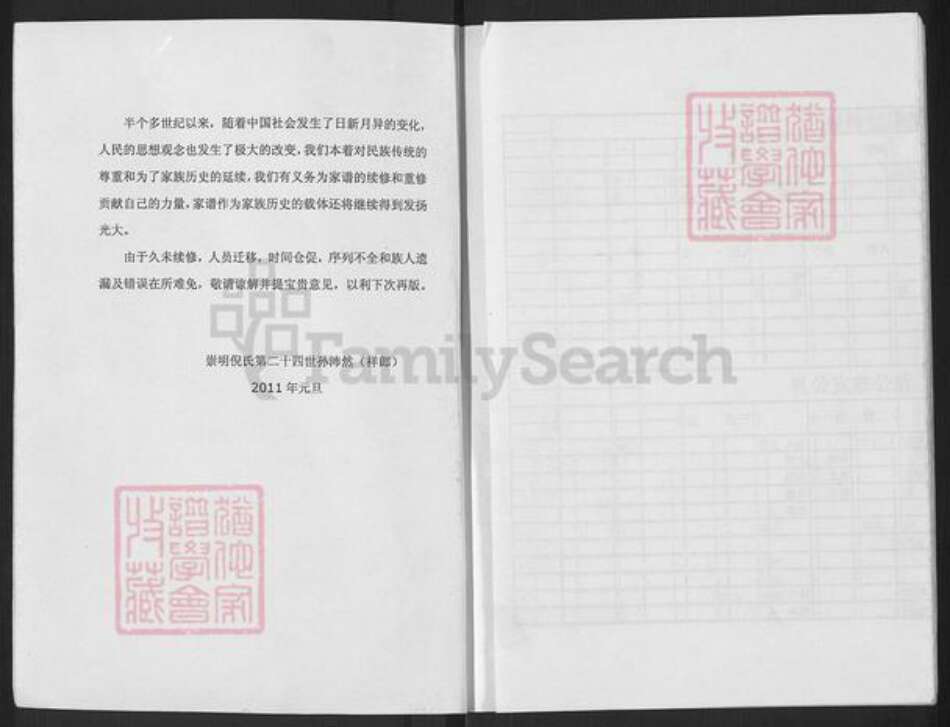 半个多世纪以来，随着中国社会发生了日新月异的变化，
人民的思想观念也发生了极大的改变，我们本着对民族传统的
尊重和为了家族历史的延续，我们有义务为家谱的续修和重修
贡献自己的力量，家谱作为家族历史的载体还将继续得到发扬
光大。
由于久未续修，人员迁移，时间仓促，序列不全和族人遗
漏及错误在所难免，敬请谅解并提宝贵意见，以利下次再版。
崇明倪氏第二十四世孙沛然（祥郎）
2011 年元旦
FamilySearch
猶他家
譜學會
收藏
猶他家
譜學會
收藏